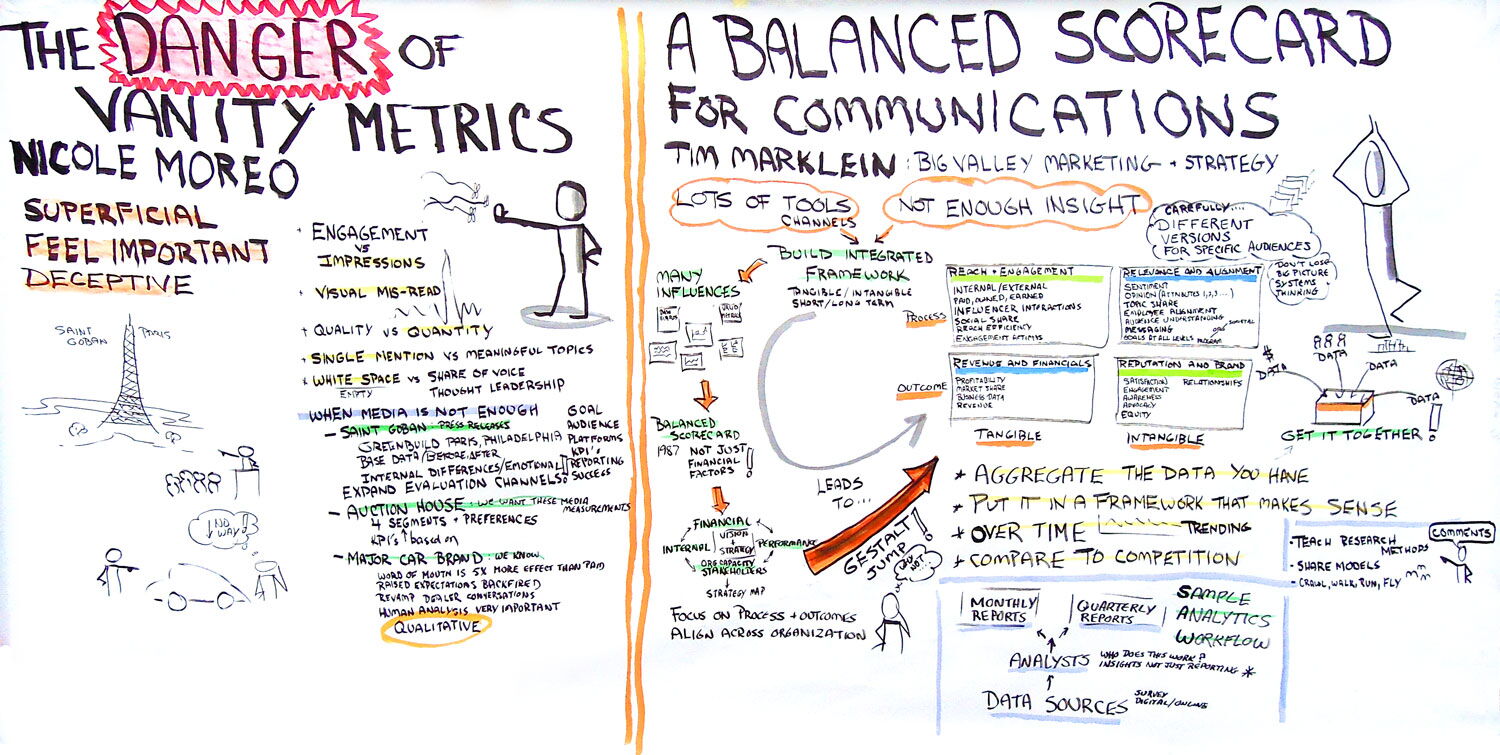 THE DANGER OF
VANITY METRICS
NICOLE MOREO
SUPERFICIAL
FEEL IMPORTANT
DECEPTIVE
SAINT GOBAN
PARIS
+ ENGAGEMENT
VS
IMPRESSIONS
+ VISUAL MIS-READ
+ QUALITY VS QUANTITY
+ SINGLE MENTION VS MEANINGFUL TOPICS
+ WHITE SPACE VS SHARE OF VOICE
EMPTY
THOUGHT LEADERSHIP
WHEN MEDIA IS NOT ENOUGH
- SAINT GOBAN: PRESS RELEASES
GREENBUILD PARIS, PHILADELPHIA
BASE DATA/BEFORE, AFTER
INTERNAL DIFFERENCES/EMOTIONAL!
EXPAND EVALUATION CHANNELS!
GOAL
AUDIENCE
PLATFORMS
KPI'S
REPORTING
SUCCESS
- AUCTION HOUSE: WE WANT THESE MEDIA
MEASUREMENTS
4 SEGMENTS + PREFERENCES
KPI's based on
- MAJOR CAR BRAND: WE KNOW
WORD OF MOUTH IS 5X MORE EFFECT THAN PAID
RAISED EXPECTATIONS BACKFIRED
REVAMP DEALER CONVERSATIONS
HUMAN ANALYSIS VERY IMPORTANT
QUALITATIVE
NO WAY!
A BALANCED SCORECARD
FOR COMMUNICATIONS
TIM MARKLEIN: BIG VALLEY MARKETING + STRATEGY
LOTS OF TOOLS
CHANNELS
NOT ENOUGH INSIGHT
CAREFULLY....
DIFFERENT
VERSIONS
FOR SPECIFIC AUDIENCES
DON'T LOSE
BIG PICTURE
SYSTEMS
THINKING
BUILD INTEGRATED
FRAMEWORK
TANGIBLE/INTANGIBLE
SHORT/LONG TERM
MANY
INFLUENCES
BALANCED
SCORECARD
1987 NOT JUST
FINANCIAL
FACTORS!
FINANCIAL
INTERNAL
VISION
+
STRATEGY
PERFORMANCE
ORG CAPACITY
STAKEHOLDERS
STRATEGY MAP
FOCUS ON PROCESS + OUTCOMES
ALIGN ACROSS ORGANIZATION
PROCESS
OUTCOME
REACH + ENGAGEMENT
INTERNAL/EXTERNAL
PAID, OWNED, EARNED
INFLUENCER INTERACTIONS
SOCIAL SHARE
REACH EFFICIENCY
RELEVANCE AND ALIGNMENT
SENTIMENT
OPINION (ATTRIBUTES 1,2,3....)
TOPIC SHARE
EMPLOYEE ALIGNMENT
AUDIENCE UNDERSTANDING
MESSAGING
GOALS AT ALL LEVELS
SOCIETAL
ORG
PROGRAM
REVENUE AND FINANCIALS
PROFITABILITY
MARKET SHARE
BUSINESS DATA
REVENUE
REPUTATION AND BRAND
SATISFACTION RELATIONSHIPS
ENGAGEMENT
AWARENESS
ADVOCACY
EQUITY
TANGIBLE
INTANGIBLE
$
DATA
DATA
DATA
DATA
GET IT TOGETHER!
LEADS
TO...
GESTALT
JUMP!
WHY NOT?
* AGGREGATE THE DATA YOU HAVE
* PUT IT IN A FRAMEWORK THAT MAKES SENSE
* OVER TIME TRENDING
* COMPARE TO COMPETITION
COMMENTS
• TEACH RESEARCH
METHODS
• SHARE MODELS
- CRAWL, WALK, RUN, FLY
MONTHLY
REPORTS
QUARTERLY
REPORTS
SAMPLE
ANALYTICS
WORKFLOW
ANALYSTS
WHO DOES THIS WORK?
INSIGHTS NOT JUST REPORTING *
DATA SOURCES
SURVEY
DIGITAL/ONLINE